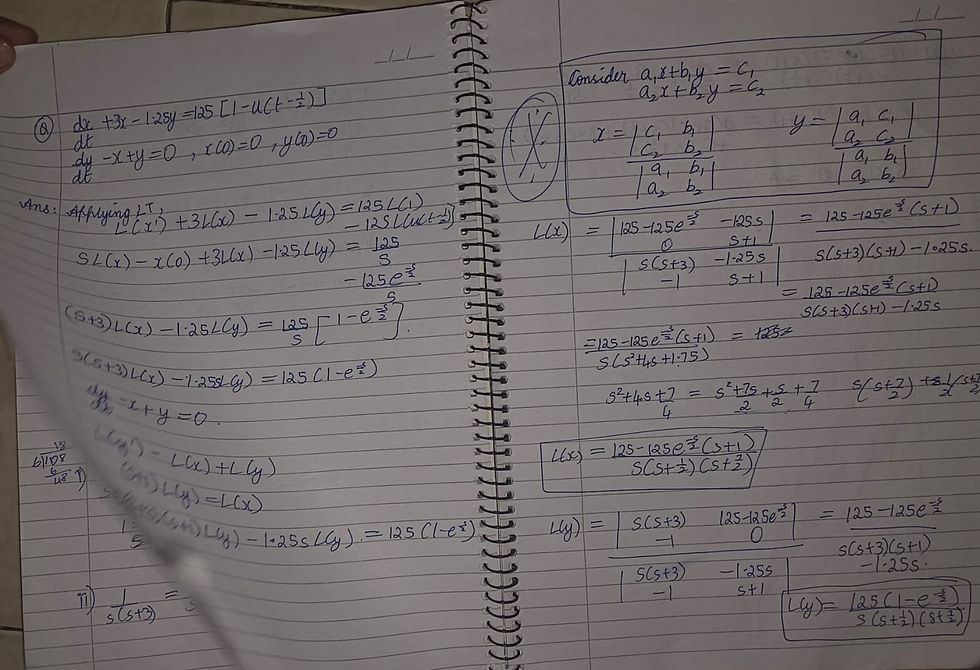 Q) dx/dt + 3x - 1.25y = 125 [1 - u(t - 1/2)]
dy/dt - x + y = 0 , x(0) = 0 , y(0) = 0
Ans: Applying LT,
L(x') + 3L(x) - 1.25L(y) = 125L(1)
- 125L(u(t - 1/2))
SL(x) - x(0) + 3L(x) - 1.25L(y) = 125/S
- 125e^{-s/2}/S
(S+3)L(x) - 1.25L(y) = 125/S [1 - e^{-s/2}].
S(S+3)L(x) - 1.25sL(y) = 125(1 - e^{-s/2})
dy/dt - x + y = 0.
L(y') - L(x) + L(y)
L(y) = L(x)
L(y) - 1.25sL(y) = 125(1 - e^{-s/2})
18
6)108
6
48
ii) 1/s(s+3) =
Consider a₁x + b₁y = c₁
a₂x + b₂y = c₂
x = |c₁ b₁; c₂ b₂| / |a₁ b₁; a₂ b₂| y = |a₁ c₁; a₂ c₂| / |a₁ b₁; a₂ b₂|
L(x) = |125-125e^{-s/2} -125s; 0 s+1| / |s(s+3) -1.25s; -1 s+1| = 125-125e^{-s/2}(s+1) / s(s+3)(s+1) - 1.25s.
= 125-125e^{-s/2}(s+1) / s(s+3)(s+1) - 1.25s
= 125-125e^{-s/2}(s+1) / s(s²+4s+1.75) =
s²+4s+7/4 = s²+7s/2+s/2+7/4 s(s+7/2)+1/2(s+7/2)
L(x) = 125-125e^{-s/2}(s+1) / s(s+1/2)(s+7/2)
L(y) = |s(s+3) 125-125e^{-s/2}; -1 0| / |s(s+3) -1.25s; -1 s+1| = 125-125e^{-s/2} / s(s+3)(s+1) -1.25s.
L(y) = 125(1-e^{-s/2}) / s(s+1/2)(s+7/2)